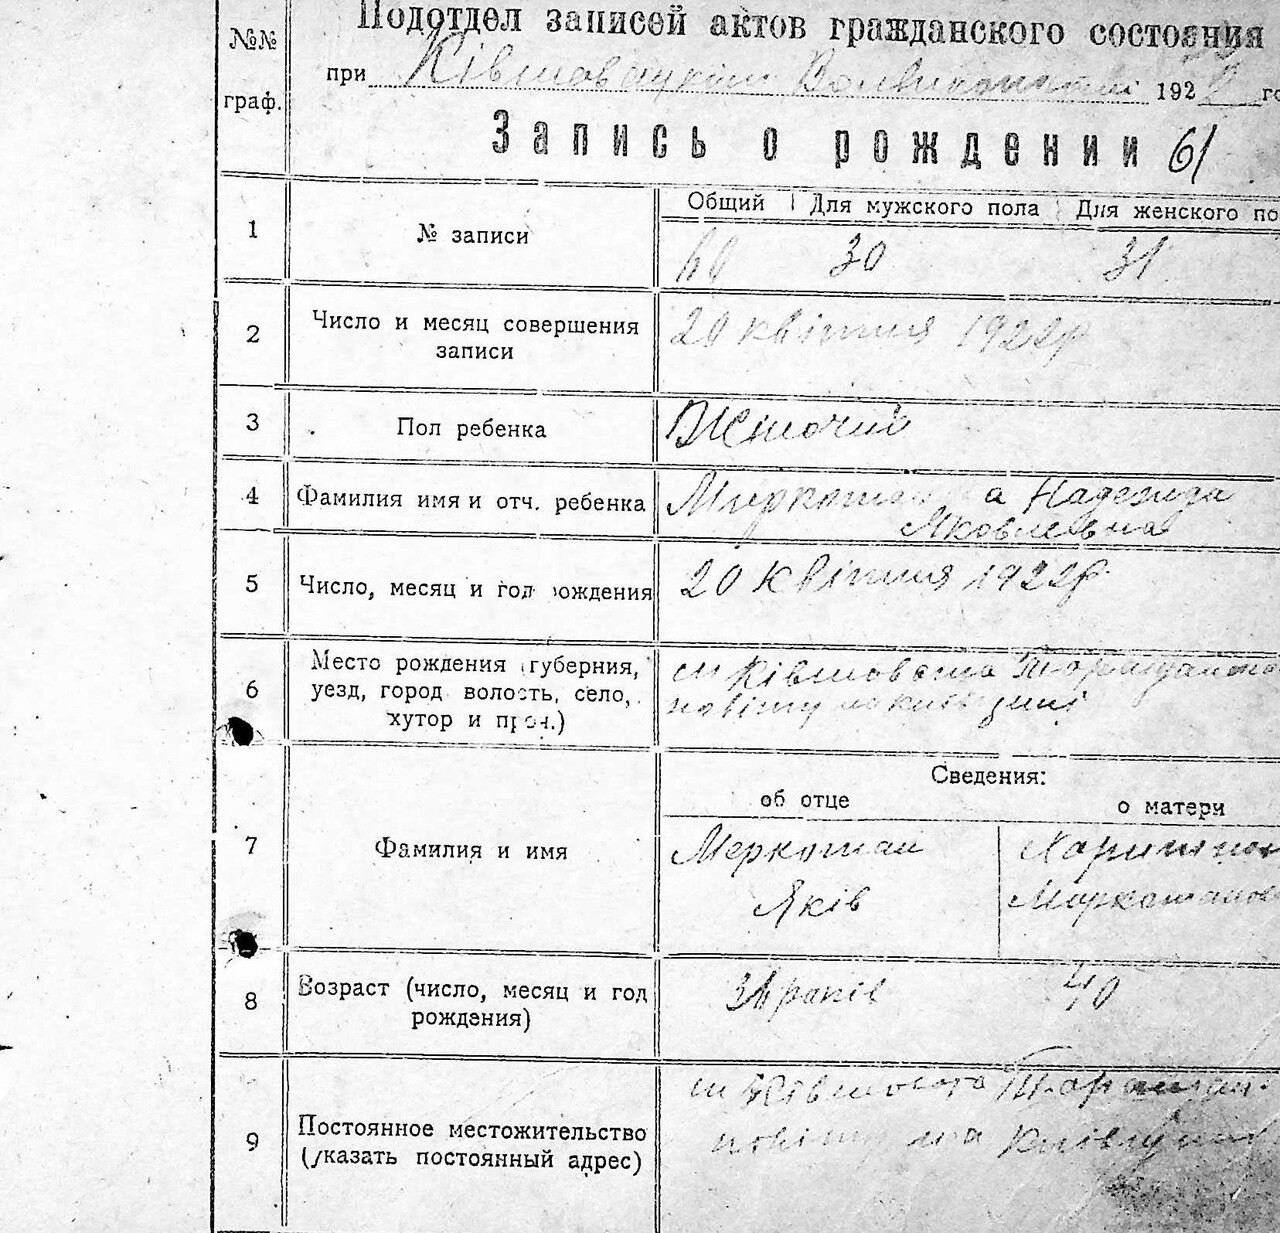 Подотдел записей актов гражданского состояния
№№ граф.
при Ківшовацкім 192 го
Запись о рождении 61
Общий Для мужского пола Для женского по
1 № записи 60 30 31
2 Число и месяц совершения записи 20 квітня 1922р
3 Пол ребенка Жіночий
4 Фамилия имя и отч. ребенка а Надежда
Яковлевна
5 Число, месяц и год рождения 20 квітня 1922р.
6 Место рождения (губерния, уезд, город волость, село, хутор и проч.) м Ківшовата
повіту на Київщині
Сведения:
об отце о матери
7 Фамилия и имя Меркотан
Яків
8 Возраст (число, месяц и год рождения) років 40
9 Постоянное местожительство (указать постоянный адрес) м Ківшовата
повіту на Київщині